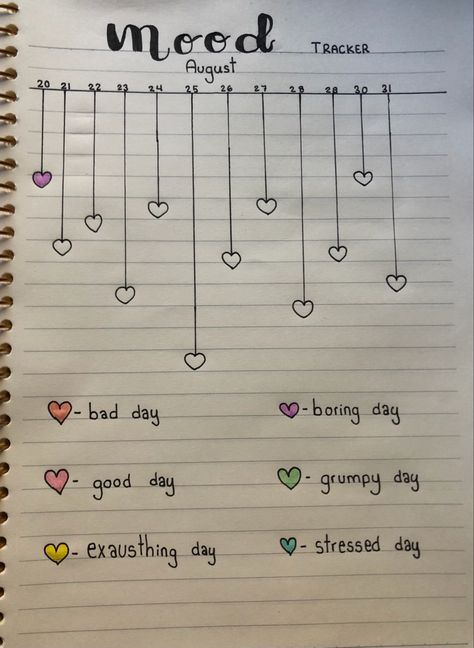 mood TRACKER
August
20 21 22 23 24 25 26 27 29 28 30 31
- bad day - boring day
- good day - grumpy day
- exausthing day - stressed day